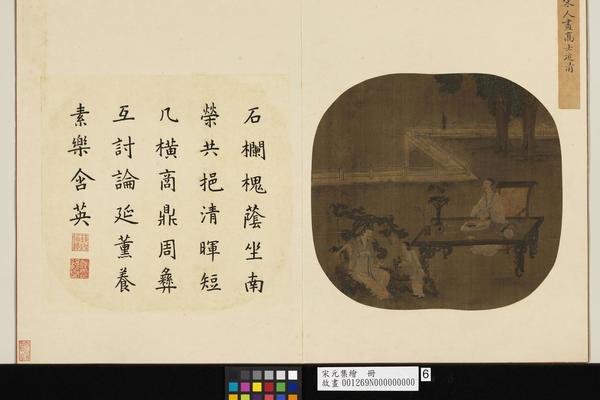 宋人畫高士
石欄槐蔭坐南
榮共挹清暉短
几橫商鼎周彝
互討論延薰養
素樂含英
宋元集繪 冊
故畫 001269N000000000
6